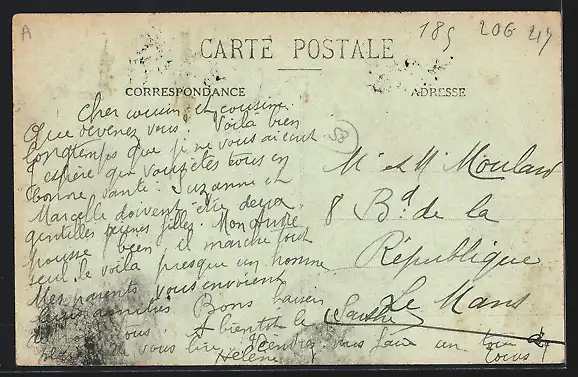 A
185 206 47
CARTE POSTALE
CORRESPONDANCE
ADRESSE
Cher cousin et cousine
Que devenez vous. Voilà bien
longtemps que je ne vous ai écrit
J'espère que vous êtes tous en
bonne santé. Suzanne et
Marcelle doivent être deux
gentilles jeunes filles. Mon André
pousse bien il marche tout
seul le voilà presque un homme
Mes parents vous envoient
leurs amitiés Bons baisers
vous. A bientôt le
de vous lire. Viendrez vous faire un tour
Hélène
53
Mr et Me Moulard
8 Bd de la
République
Le Mans
Sarthe